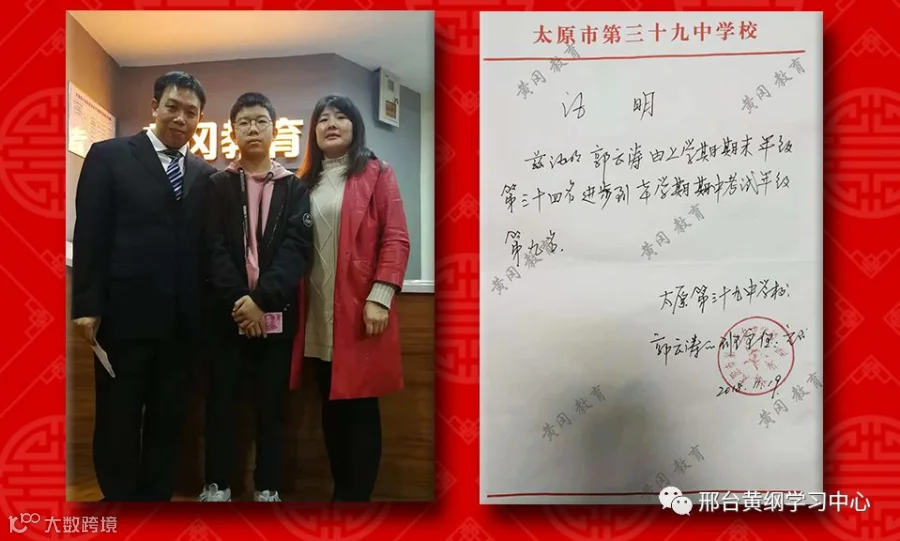 冈教育
太原市第三十九中学校
证明
兹证明郭云涛由上学期期末年级
第三十四名进步到本学期期中考试年级
第九名.
太原第三十九中学校:
郭云涛
2018.11.19
黄冈 教育
黄冈 教育
黄冈 教育
黄冈 教育
黄冈 教育
黄冈 教育
黄冈 教育
邢台黄纲学习中心
大数跨境